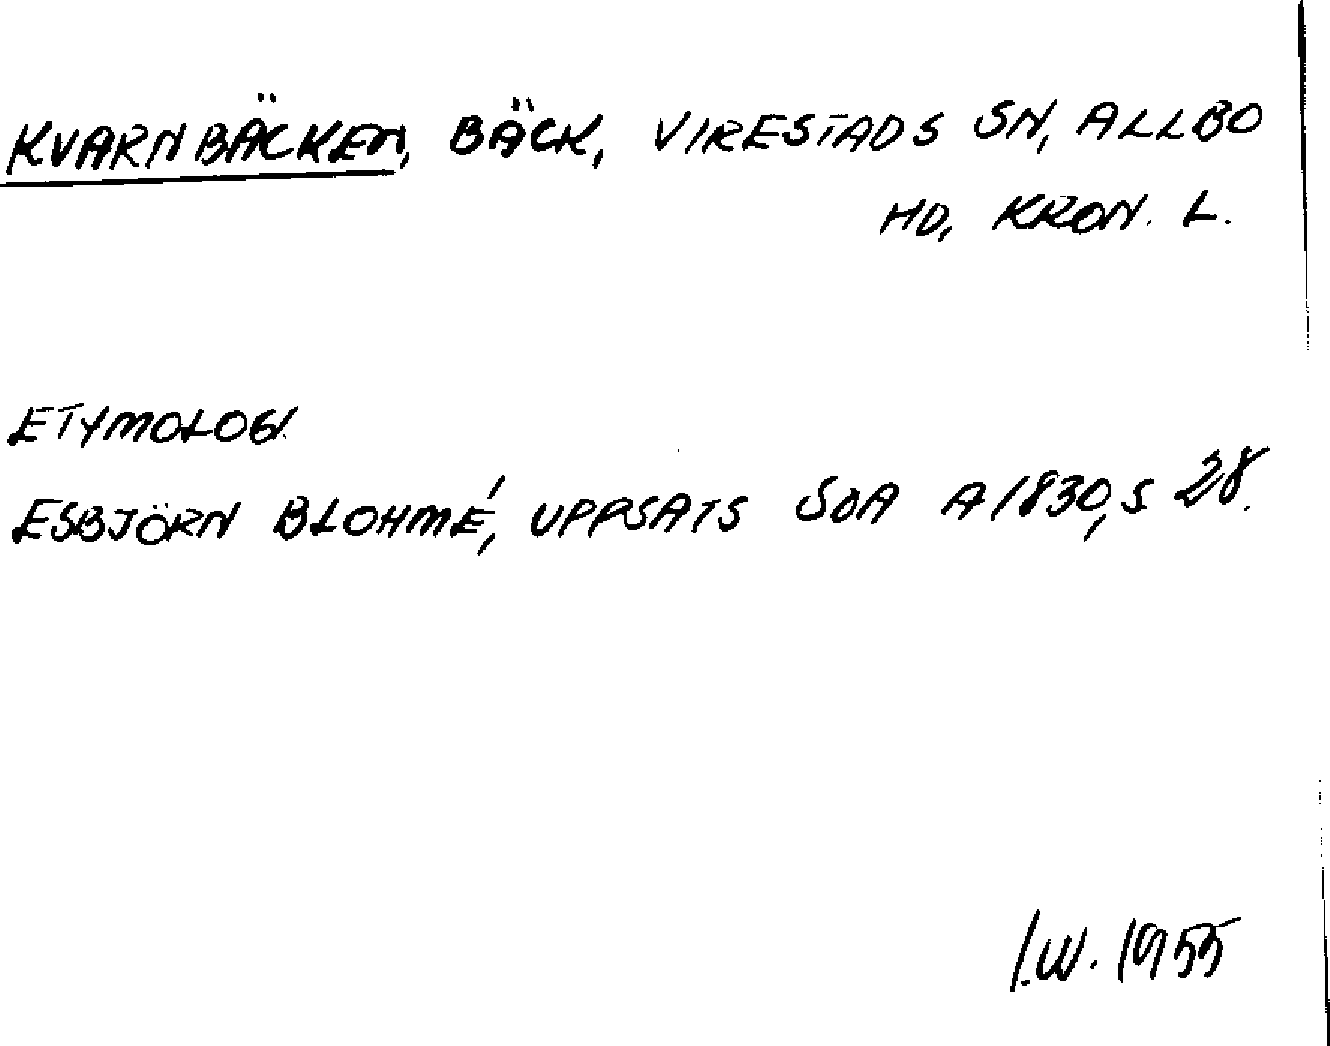 KVARNBÄCKEN, BÄCK, VIRESTADS SN, ALLBO
HD, KRON. L.
ETYMOLOGI.
ESBJÖRN BLOHMÉ, UPPSATS SOA A1830, S 28.
I.W. 1955